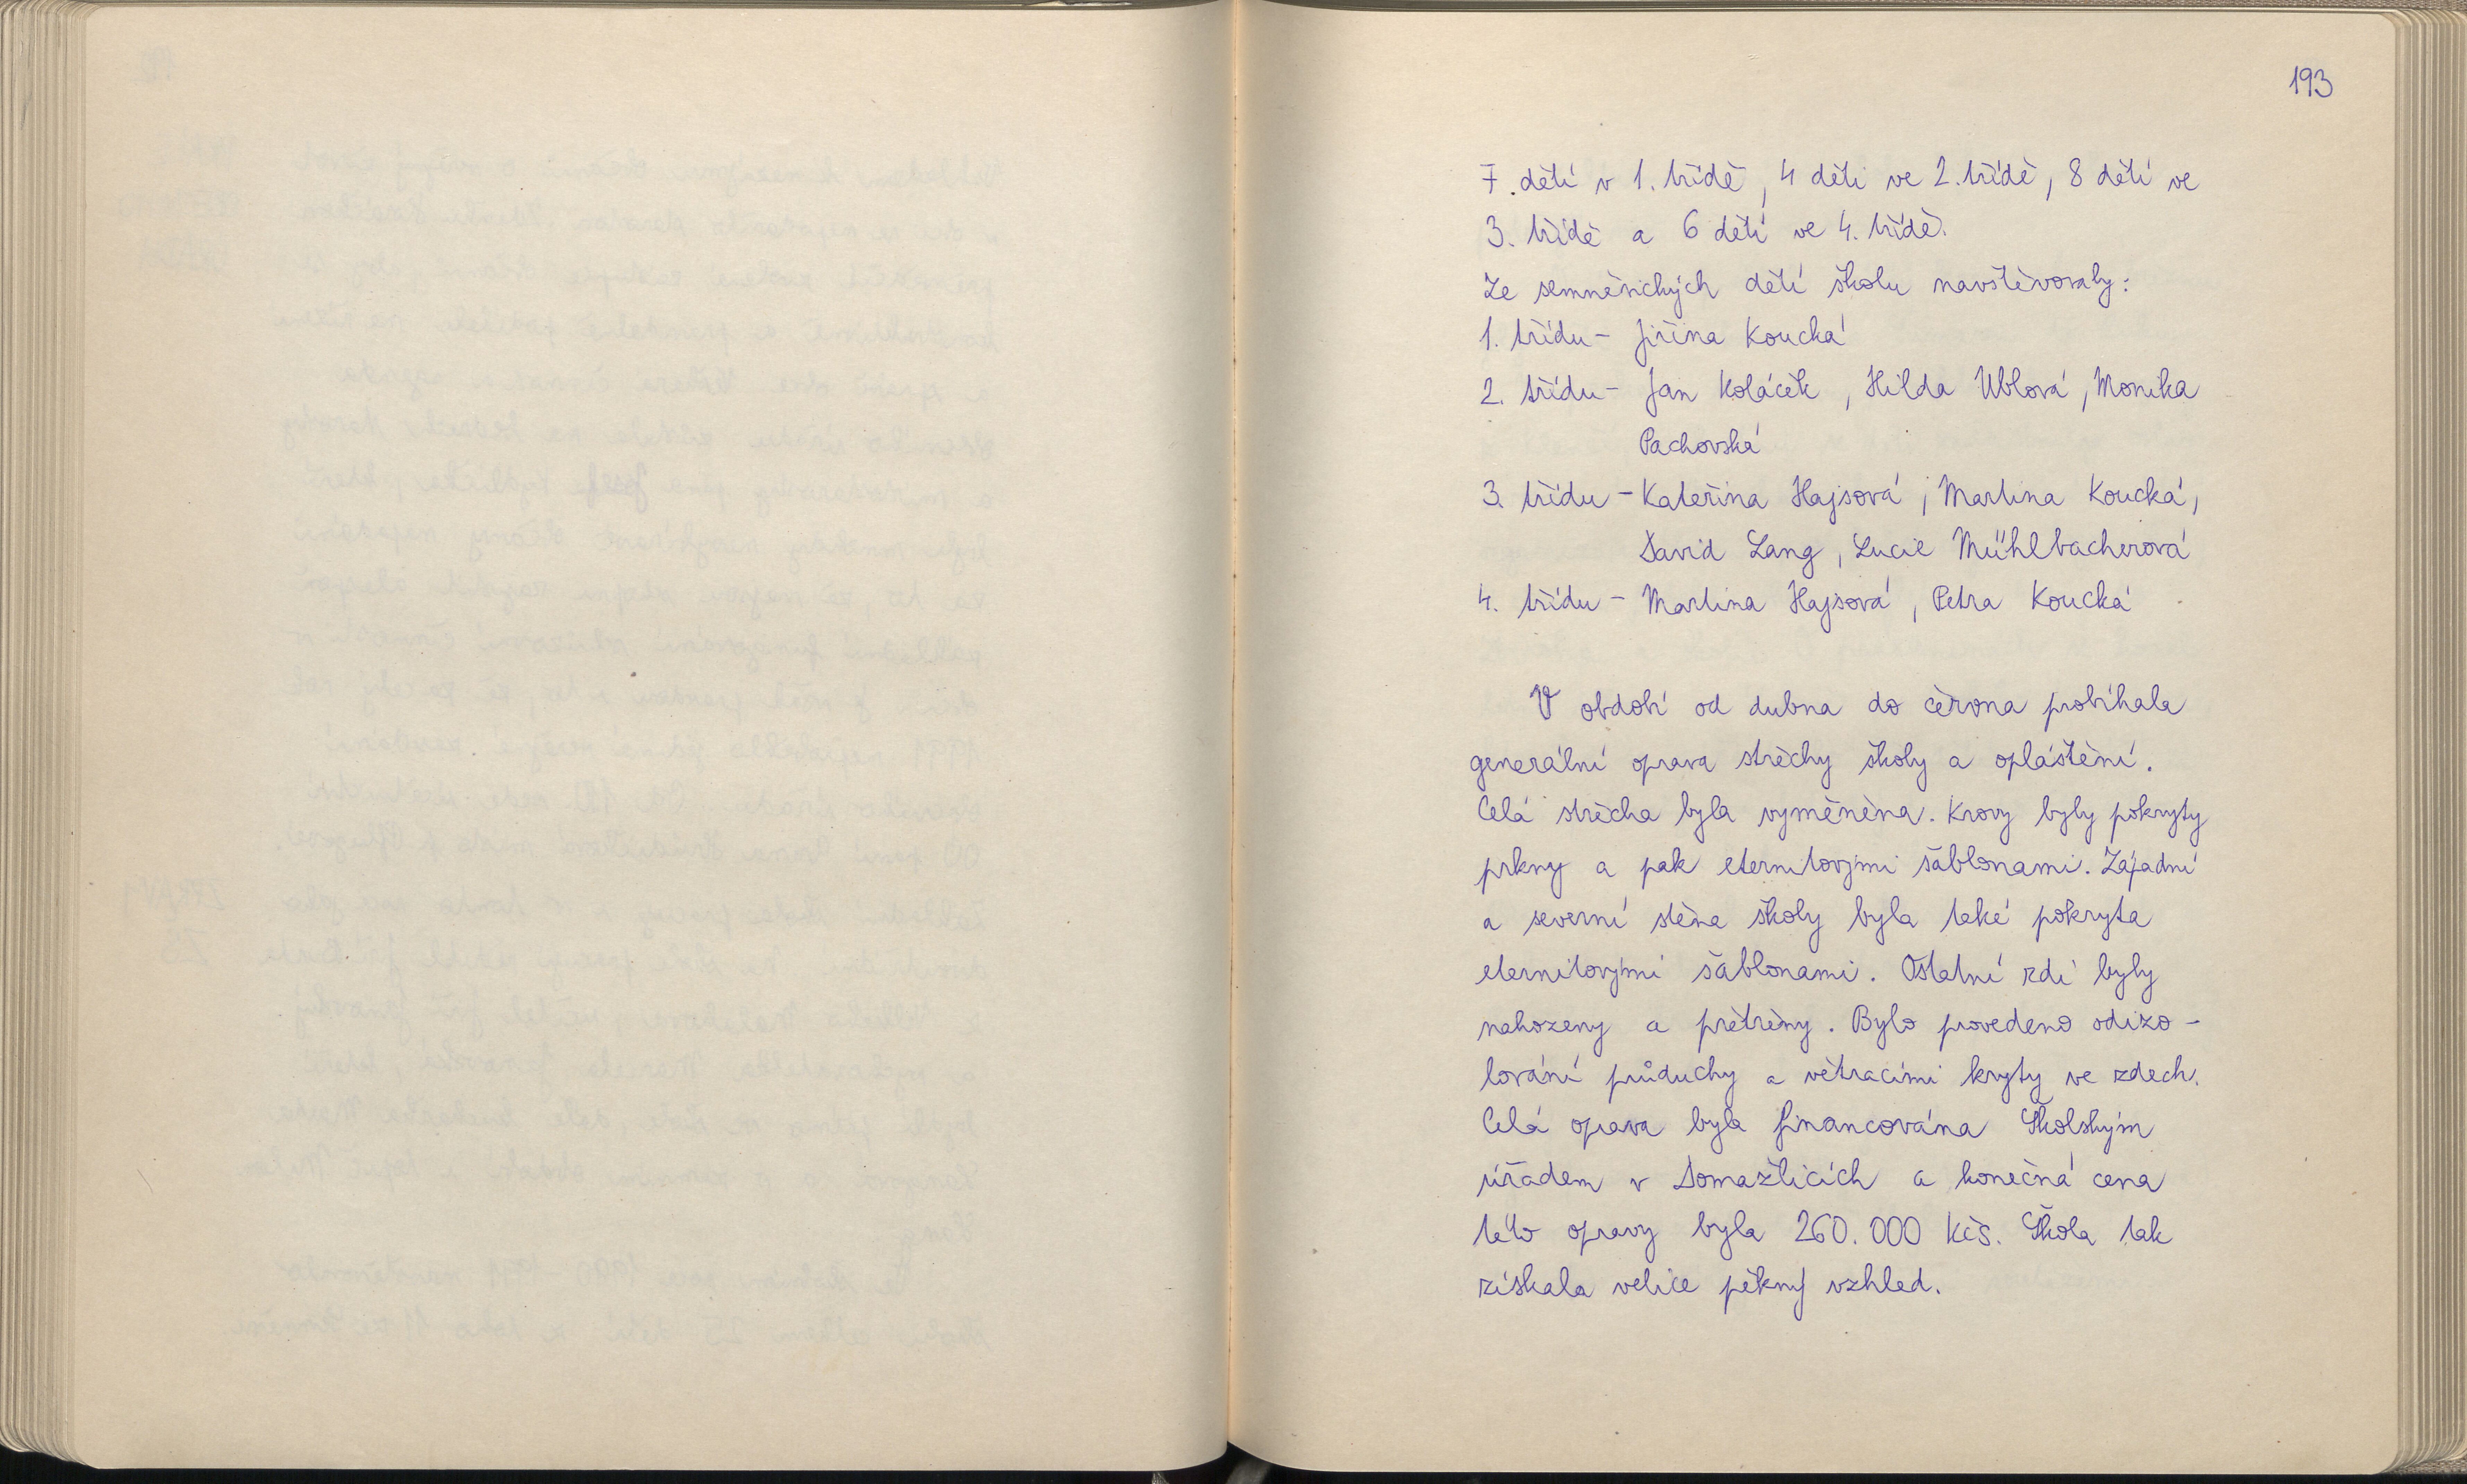 193
7. dětí v 1. třídě, 4 děti ve 2. třídě, 8 dětí ve
3. třídě a 6 dětí ve 4. třídě.
Ze semněvických dětí školu navštěvovaly:
1. třídu - Jiřina Koucká
2. třídu - Jan Koláček, Hilda Ublová, Monika
Pachovská
3. třídu - Kateřina Hajsová, Martina Koucká,
David Lang, Lucie Mühlbacherová
4. třídu - Martina Hajsová, Petra Koucká
V období od dubna do června probíhala
generální oprava střechy školy a opláštění.
Celá střecha byla vyměněna. Krovy byly pokryty
prkny a pak eternitovými šablonami. Západní
a severní stěna školy byla také pokryta
eternitovými šablonami. Ostatní zdi byly
nahozeny a přetřeny. Bylo provedeno odizo-
lování průduchy a větracími kryty ve zdech.
Celá oprava byla financována Školským
úřadem v Domažlicích a konečná cena
této opravy byla 260.000 Kčs. Škola tak
získala velice pěkný vzhled.